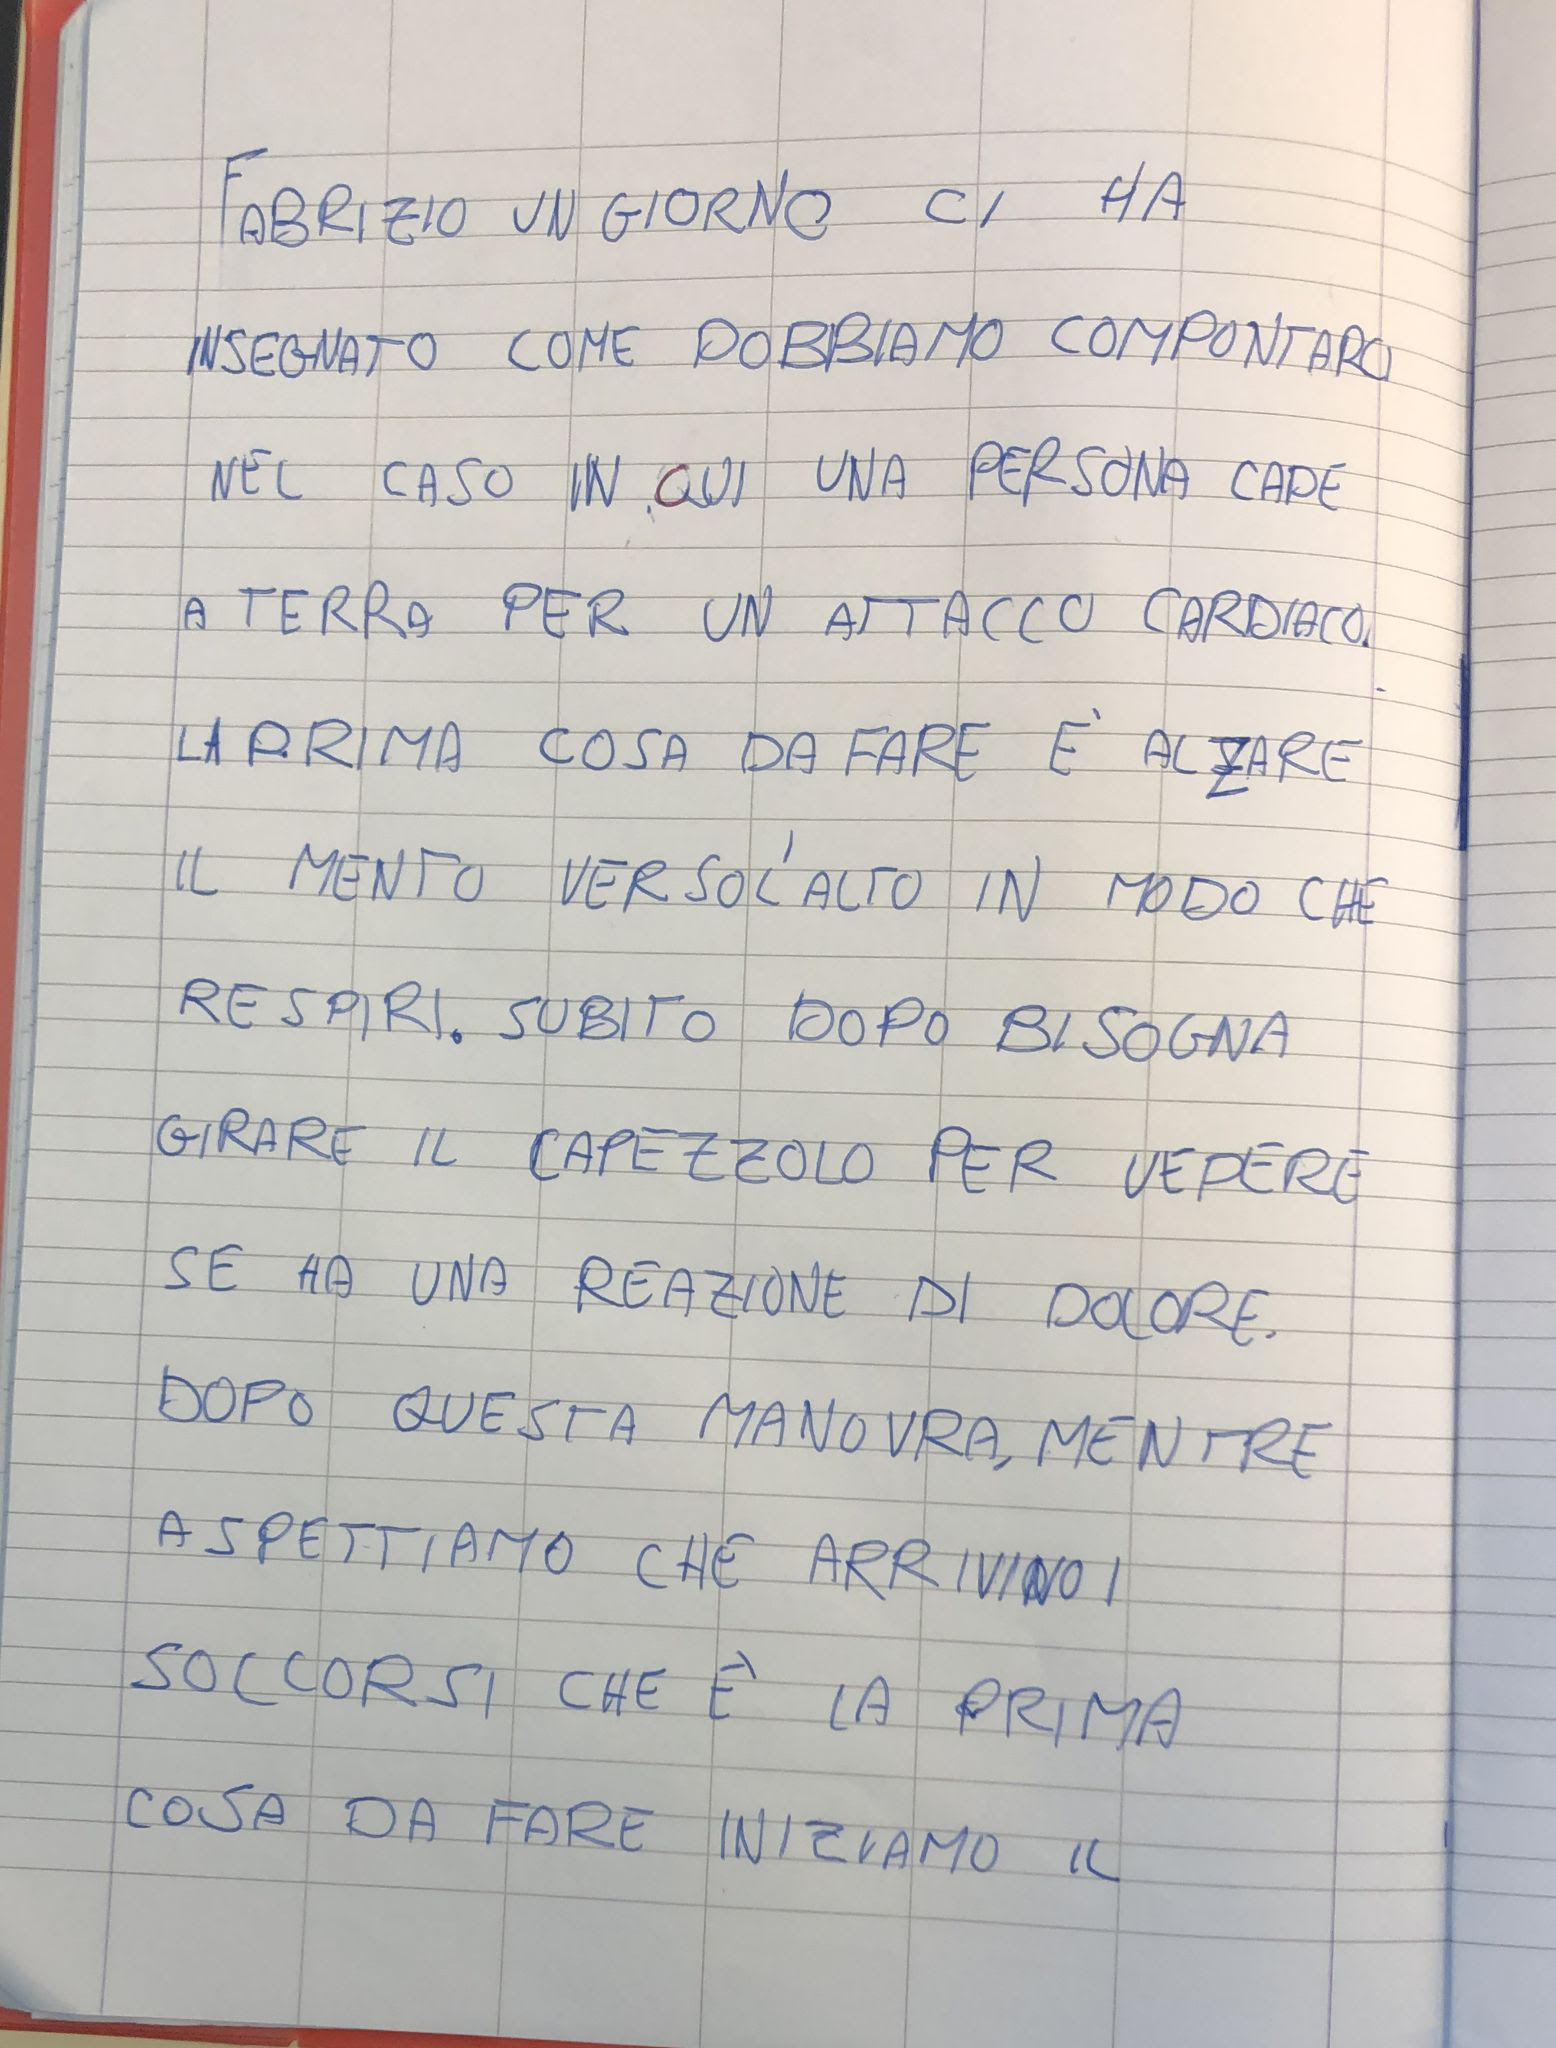 FABRIZIO UN GIORNO CI HA
INSEGNATO COME DOBBIAMO COMPONTARCI
NEL CASO IN QUI UNA PERSONA CADE
A TERRA PER UN ATTACCO CARDIACO.
LA PRIMA COSA DA FARE E' ALZARE
IL MENTO VERSO L'ALTO IN MODO CHE
RESPIRI. SUBITO DOPO BISOGNA
GIRARE IL CAPEZZOLO PER VEDERE
SE HA UNA REAZIONE DI DOLORE.
DOPO QUESTA MANOVRA, MENTRE
ASPETTIAMO CHE ARRIVINO I
SOCCORSI CHE È LA PRIMA
COSA DA FARE INIZIAMO IL